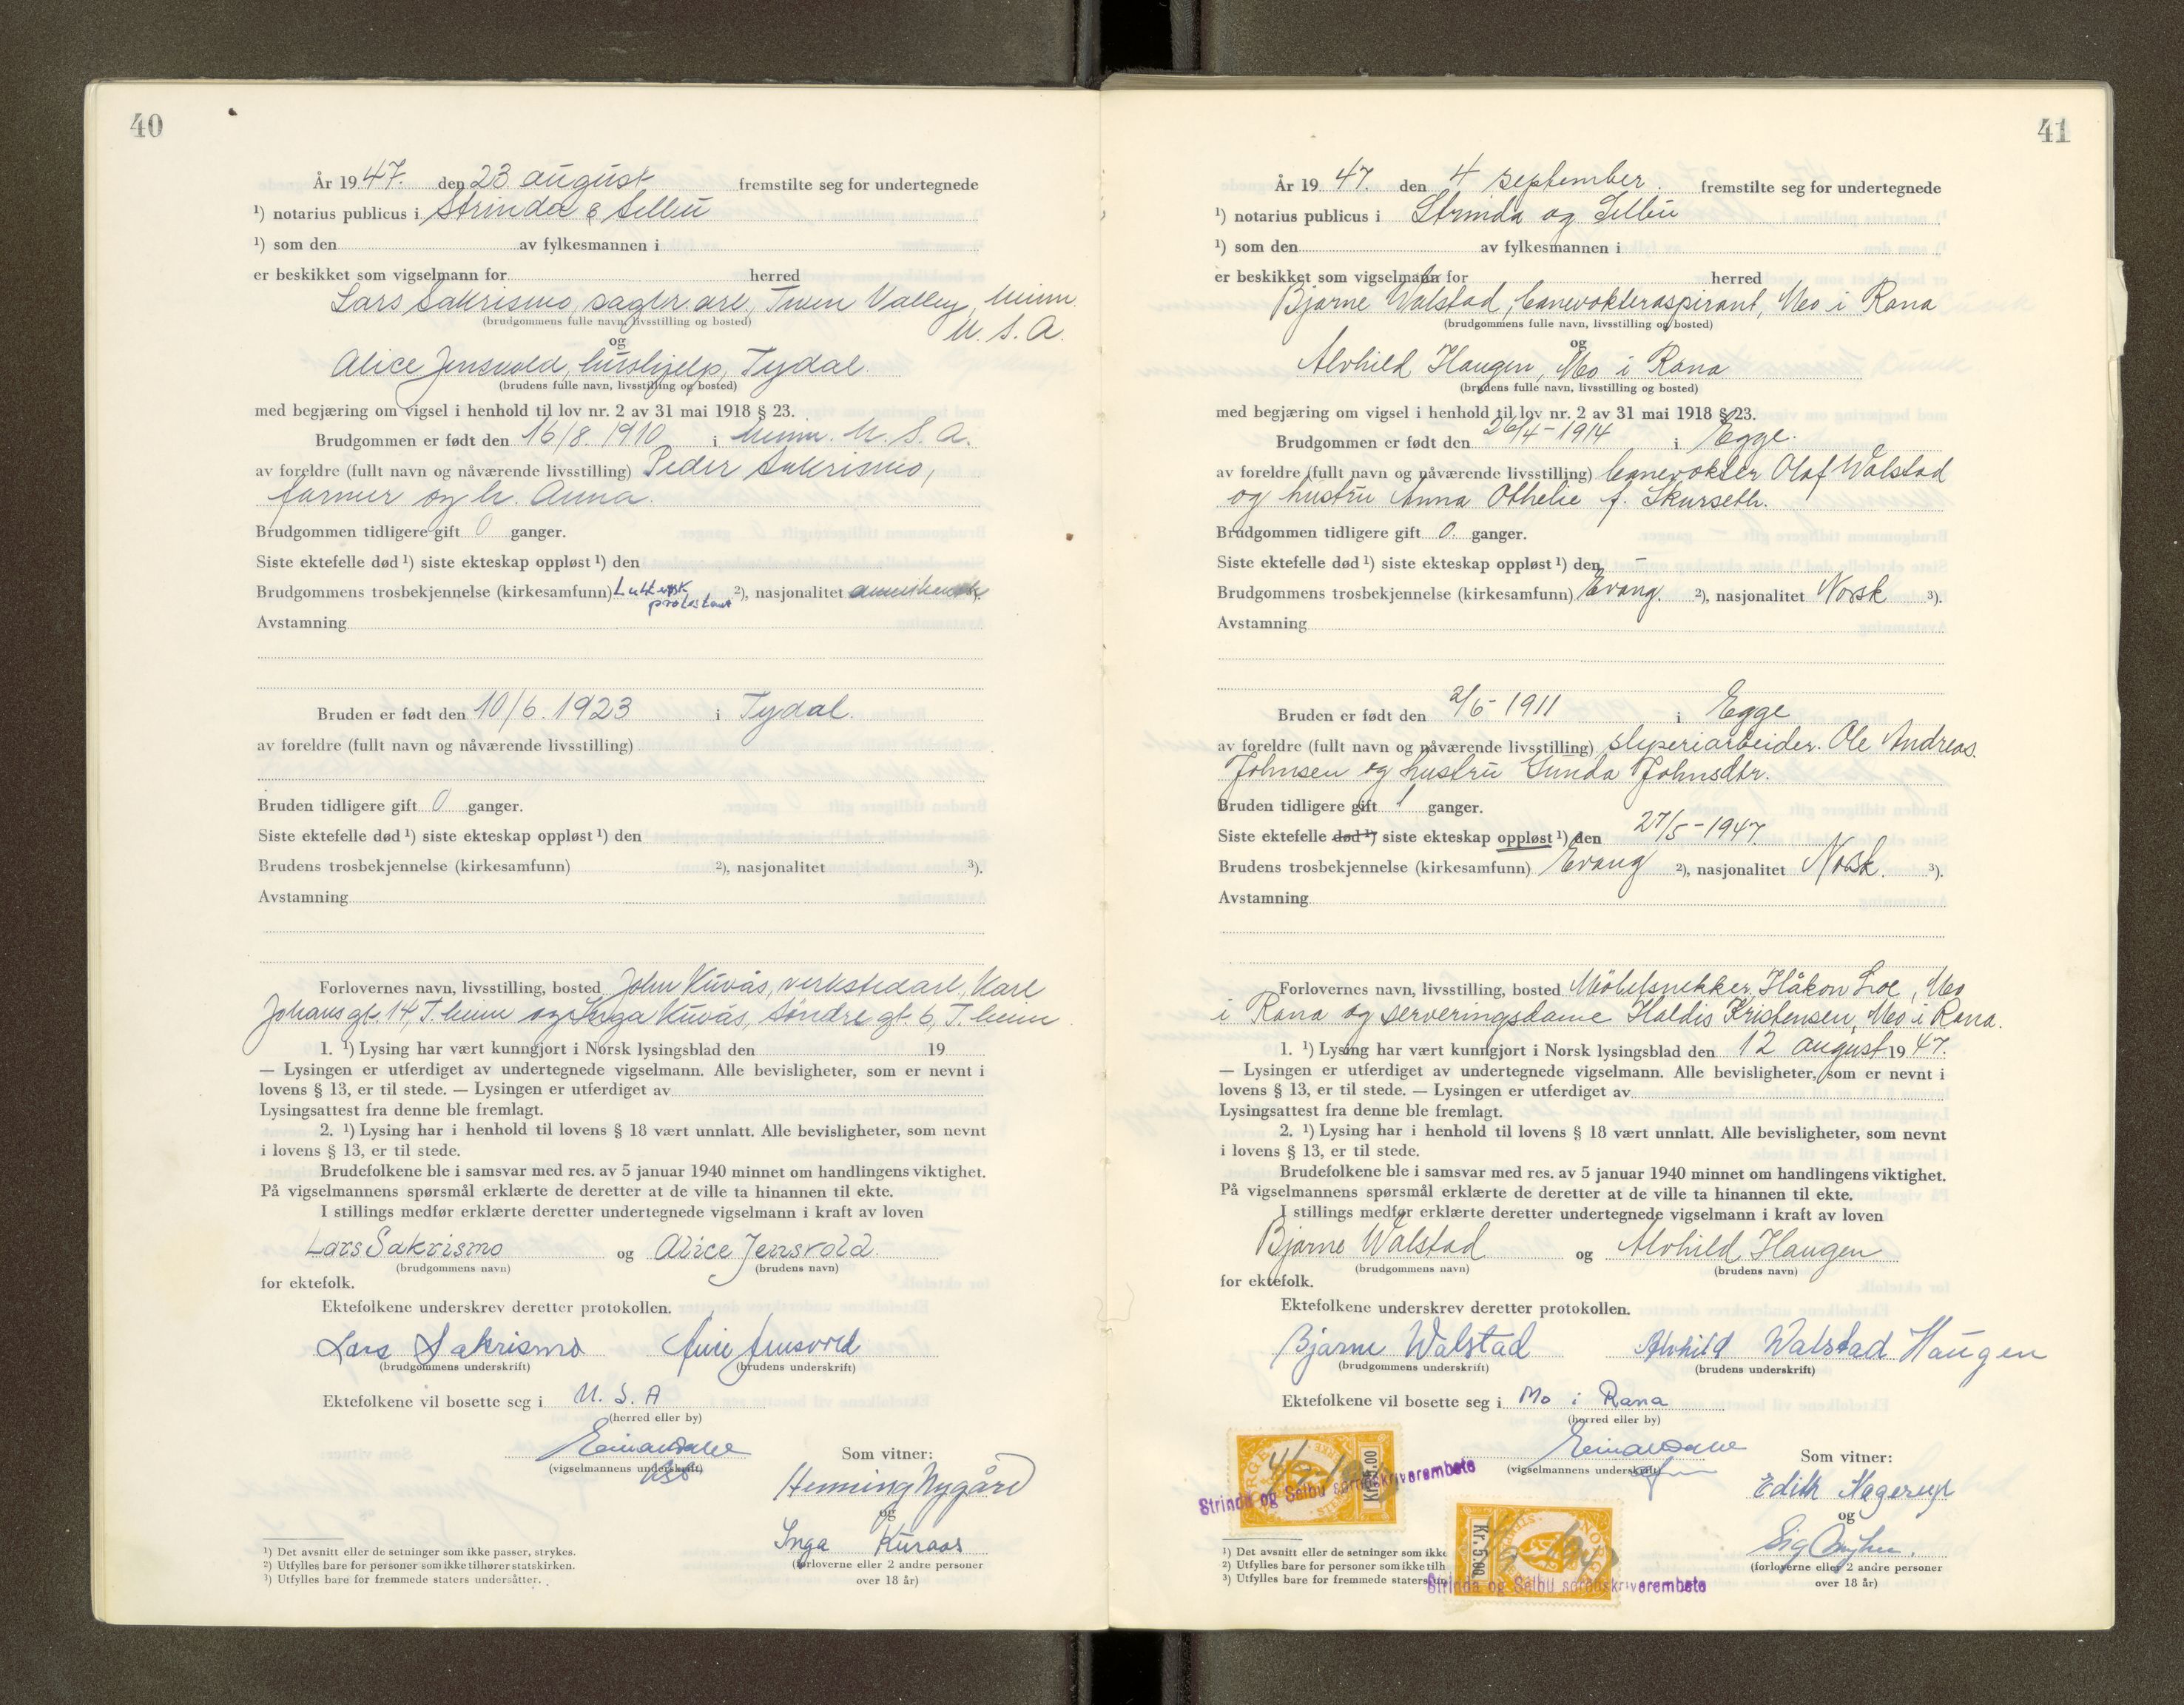 40
År 1947. den 23 august fremstilte seg for undertegnede
¹) notarius publicus i Strinda & Selbu
¹) som den av fylkesmannen i
er beskikket som vigselmann for herred
Lars Sakrismo, sagbr.arb., Twin Valley, Minn.
(brudgommens fulle navn, livsstilling og bosted)
U. S. A.
og
Alice Jensvold, hushjelp, Tydal.
(brudens fulle navn, livsstilling og bosted)
med begjæring om vigsel i henhold til lov nr. 2 av 31 mai 1918 § 23.
Brudgommen er født den 16/8. 1910 i Minn. U. S. A.
av foreldre (fullt navn og nåværende livsstilling) Peder Sakrismo,
farmer og h. Anna.
Brudgommen tidligere gift 0 ganger.
Siste ektefelle død ¹) siste ekteskap oppløst ¹) den
Brudgommens trosbekjennelse (kirkesamfunn) Luthersk protestant ²), nasjonalitet amerikansk ³).
Avstamning
Bruden er født den 10/6. 1923 i Tydal.
av foreldre (fullt navn og nåværende livsstilling)
Bruden tidligere gift 0 ganger.
Siste ektefelle død ¹) siste ekteskap oppløst ¹) den
Brudens trosbekjennelse (kirkesamfunn) ²), nasjonalitet ³).
Avstamning
Forlovernes navn, livsstilling, bosted John Kuvås, verkstedarb., Karl
Johans gt. 14, T.heim og Inga Kuvås, Søndre gt. 6, T.heim
1. ¹) Lysing har vært kunngjort i Norsk lysingsblad den 19
— Lysingen er utferdiget av undertegnede vigselmann. Alle bevisligheter, som er nevnt i
lovens § 13, er til stede. — Lysingen er utferdiget av
Lysingsattest fra denne ble fremlagt.
2. ¹) Lysing har i henhold til lovens § 18 vært unnlatt. Alle bevisligheter, som nevnt
i lovens § 13, er til stede.
Brudefolkene ble i samsvar med res. av 5 januar 1940 minnet om handlingens viktighet.
På vigselmannens spørsmål erklærte de deretter at de ville ta hinannen til ekte.
I stillings medfør erklærte deretter undertegnede vigselmann i kraft av loven
Lars Sakrismo og Alice Jensvold.
(brudgommens navn) (brudens navn)
for ektefolk.
Ektefolkene underskrev deretter protokollen.
Lars Sakrismo Alice Jensvold
(brudgommens underskrift) (brudens underskrift)
Ektefolkene vil bosette seg i U. S. A
(herred eller by)
(vigselmannens underskrift)
Som vitner:
Henning Nygård
og
Inga Kuraas
(forloverne eller 2 andre personer
over 18 år)
¹) Det avsnitt eller de setninger som ikke passer, strykes.
²) Utfylles bare for personer som ikke tilhører statskirken.
³) Utfylles bare for fremmede staters undersåtter.
41
År 1947. den 4 september. fremstilte seg for undertegnede
¹) notarius publicus i Strinda og Selbu
¹) som den av fylkesmannen i
er beskikket som vigselmann for herred
Bjarne Walstad, banevokteraspirant, Mo i Rana
(brudgommens fulle navn, livsstilling og bosted)
og
Alvhild Haugen, Mo i Rana
(brudens fulle navn, livsstilling og bosted)
med begjæring om vigsel i henhold til lov nr. 2 av 31 mai 1918 § 23.
Brudgommen er født den 26/4-1914 i Egge.
av foreldre (fullt navn og nåværende livsstilling) banevokter Olaf Walstad
og hustru Anna Othelie f. Skurseth.
Brudgommen tidligere gift 0. ganger.
Siste ektefelle død ¹) siste ekteskap oppløst ¹) den –
Brudgommens trosbekjennelse (kirkesamfunn) Evang. ²), nasjonalitet Norsk ³).
Avstamning
Bruden er født den 2/6-1911 i Egge
av foreldre (fullt navn og nåværende livsstilling) sliperiarbeider. Ole Andreas
Johnsen og hustru Gunda Johnsdtr.
Bruden tidligere gift 1 ganger.
Siste ektefelle død ¹) siste ekteskap oppløst ¹) den 27/5-1947
Brudens trosbekjennelse (kirkesamfunn) Evang ²), nasjonalitet Norsk. ³).
Avstamning
Forlovernes navn, livsstilling, bosted Möbelsnekker Håkon Loe, Mo
i Rana og serveringsdame Haldis Kristensen, Mo i Rana.
1. ¹) Lysing har vært kunngjort i Norsk lysingsblad den 12 august 1947.
— Lysingen er utferdiget av undertegnede vigselmann. Alle bevisligheter, som er nevnt i
lovens § 13, er til stede. — Lysingen er utferdiget av
Lysingsattest fra denne ble fremlagt.
2. ¹) Lysing har i henhold til lovens § 18 vært unnlatt. Alle bevisligheter, som nevnt
i lovens § 13, er til stede.
Brudefolkene ble i samsvar med res. av 5 januar 1940 minnet om handlingens viktighet.
På vigselmannens spørsmål erklærte de deretter at de ville ta hinannen til ekte.
I stillings medfør erklærte deretter undertegnede vigselmann i kraft av loven
Bjarne Walstad og Alvhild Haugen
(brudgommens navn) (brudens navn)
for ektefolk.
Ektefolkene underskrev deretter protokollen.
Bjarne Walstad Alvhild Walstad Haugen
(brudgommens underskrift) (brudens underskrift)
Ektefolkene vil bosette seg i Mo i Rana
(herred eller by)
(vigselmannens underskrift)
Som vitner:
Edith Hagerup
og
(forloverne eller 2 andre personer
over 18 år)
Strinda og Selbu sorenskriverembete
Kr. 5.00
Strinda og Selbu sorenskriverembete
¹) Det avsnitt eller de setninger som ikke
²) Utfylles bare for personer som ikke tilh
³) Utfylles bare for fremmede staters un